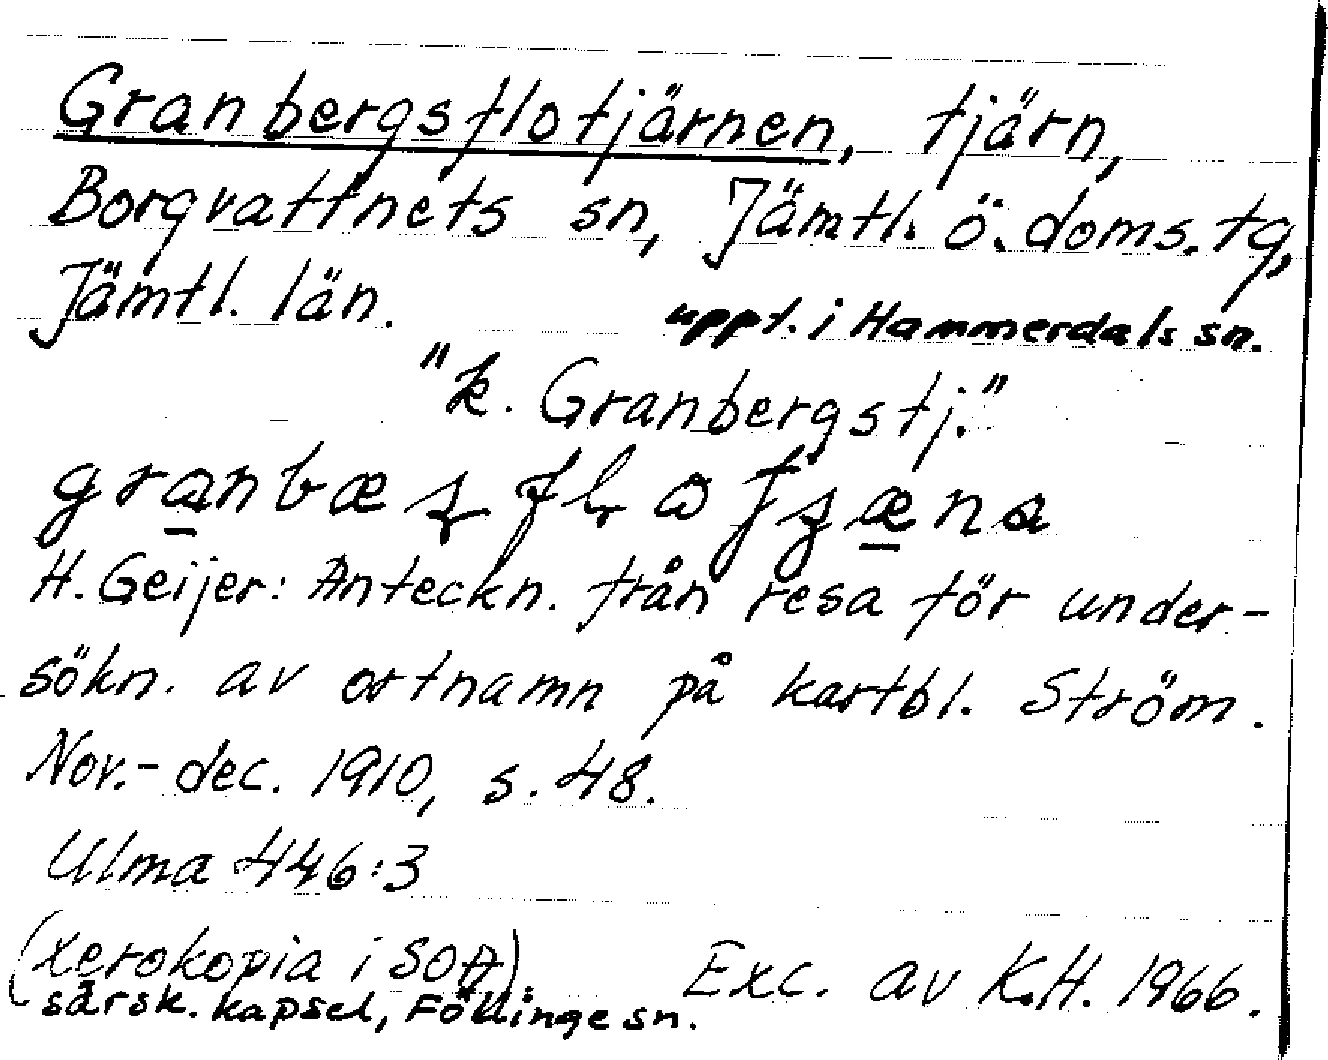 Granbergsflotjärnen, tjärn,
Borgvattnets sn, Jämtl. ö. doms. tg,
Jämtl. län.
uppt. i Hammerdals sn.
"k. Granbergstj."
H. Geijer: Anteckn. från resa för under-
sökn. av ortnamn på kartbl. Ström.
Nov.- dec. 1910, s. 48.
Ulma 446:3
(xerokopia i SOA).
särsk. kapsel, Föllinge sn.
Exc. av K.H. 1966.